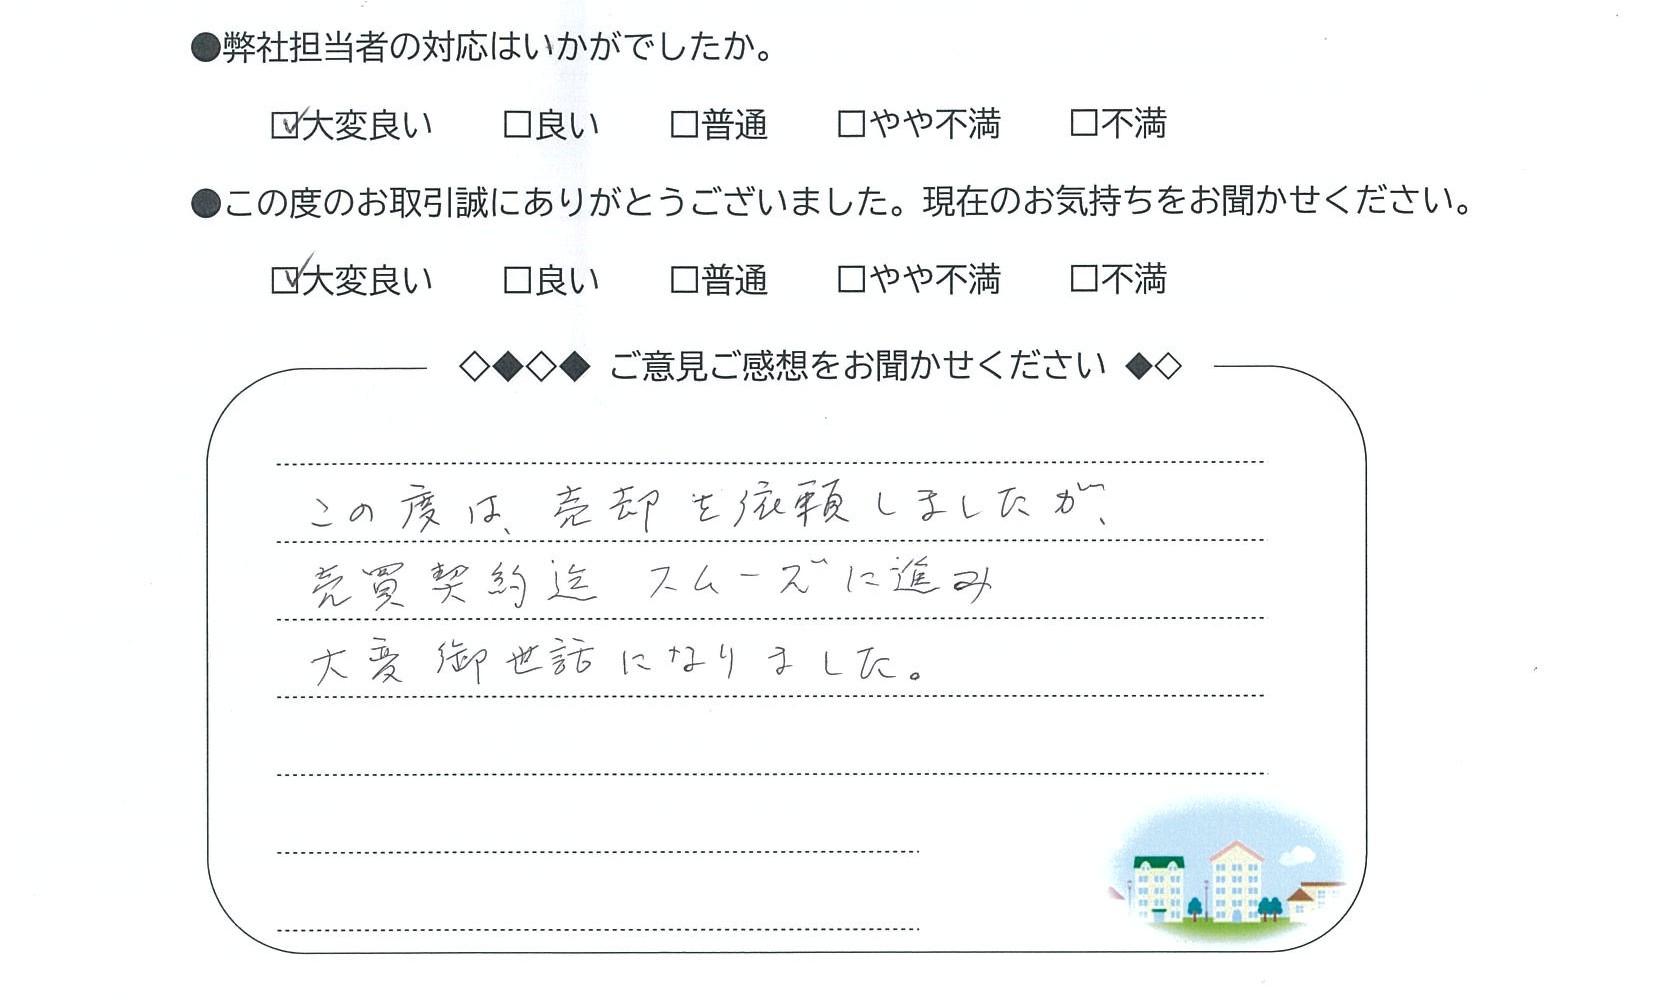 ●弊社担当者の対応はいかがでしたか。
☑大変良い □良い □普通 □やや不満 □不満
●この度のお取引誠にありがとうございました。現在のお気持ちをお聞かせください。
☑大変良い □良い □普通 □やや不満 □不満
◇◆◇◆ ご意見ご感想をお聞かせください ◆◇
この度は、売却を依頼しましたが、
売買契約迄 スムーズに進み
大変御世話になりました。